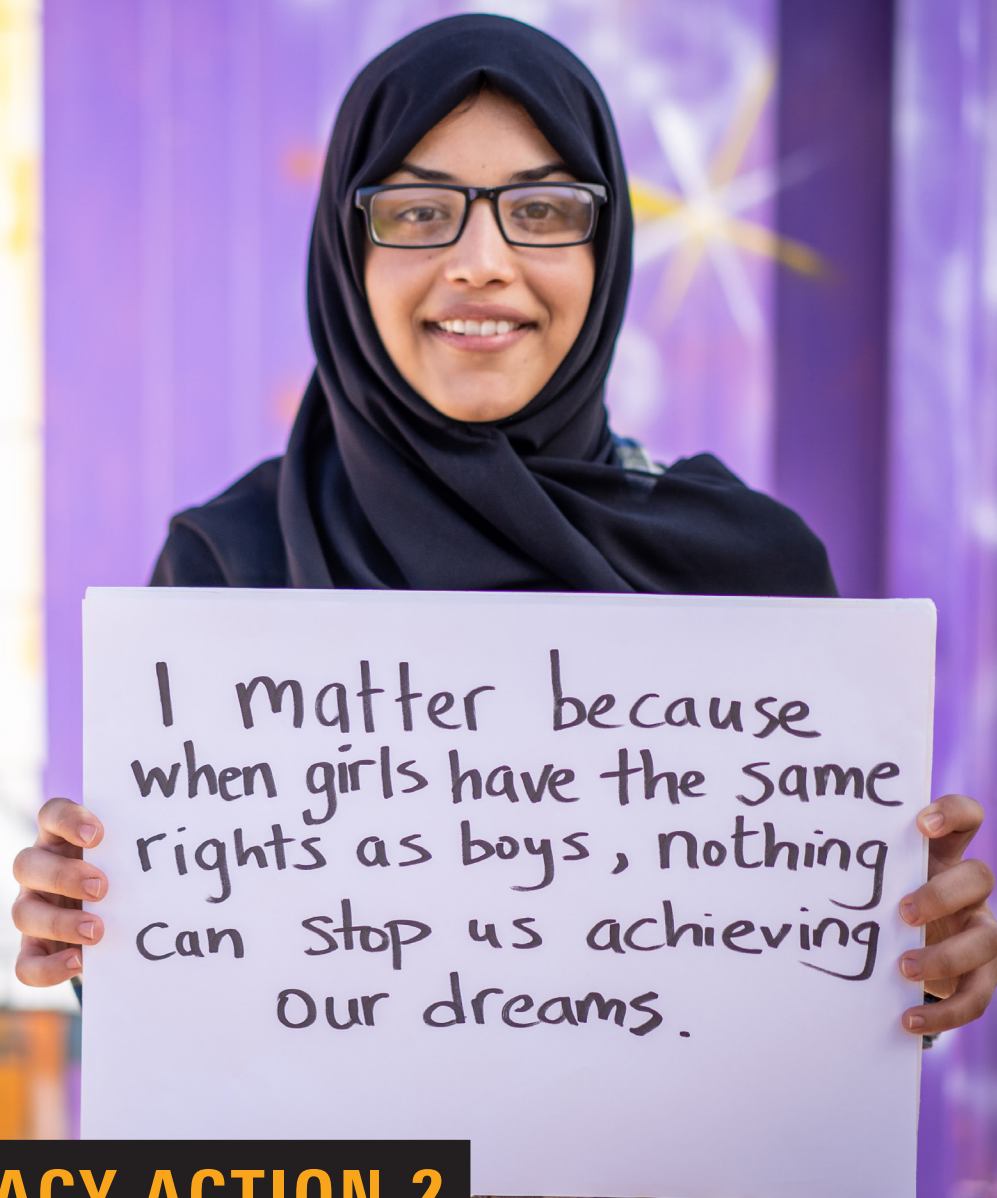 I matter because
when girls have the same
rights as boys, nothing
can stop us achieving
our dreams.
ACY ACTION 2